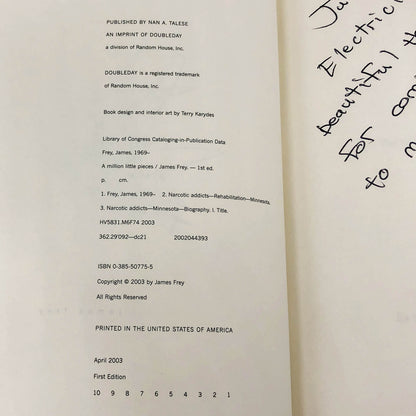 PUBLISHED BY NAN A. TALESE
AN IMPRINT OF DOUBLEDAY
a division of Random House, Inc.
DOUBLEDAY is a registered trademark
of Random House, Inc.
Book design and interior art by Terry Karydes
Library of Congress Cataloging-in-Publication Data
Frey, James, 1969–
A million little pieces / James Frey. — 1st ed.
p. cm.
1. Frey, James, 1969– 2. Narcotic addicts—Rehabilitation—Minnesota.
3. Narcotic addicts—Minnesota—Biography. I. Title.
HV5831.M6F74 2003
362.29'092—dc21 2002044393
ISBN 0-385-50775-5
Copyright © 2003 by James Frey
All Rights Reserved
PRINTED IN THE UNITED STATES OF AMERICA
April 2003
First Edition
10 9 8 7 6 5 4 3 2 1
Electric
beautiful th
for com
to m